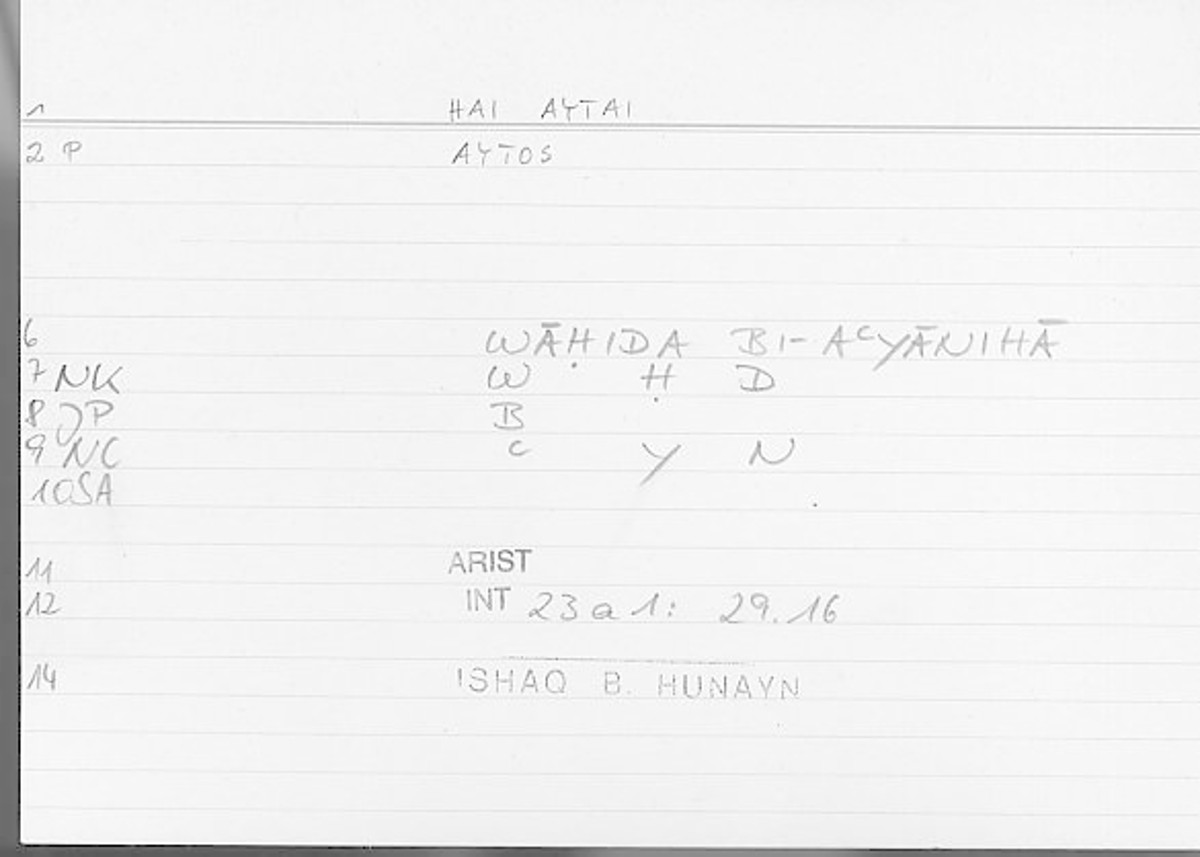 1 HAI AYTAI
2 P AYTOS
6 WĀḤIDA BI-AᶜYĀNIHĀ
7 NK W Ḥ D
8 JP B
9 NC ᶜ Y N
10SA
11 ARIST
12 INT 23a1: 29.16
14 ISHAQ B. HUNAYN